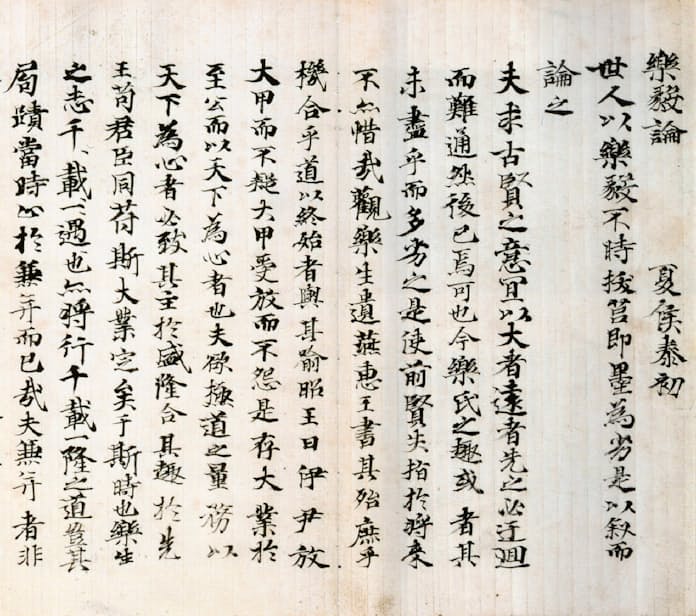 樂毅論 夏侯泰初
世人以樂毅不時拔莒即墨為劣是以叙而
論之
夫求古賢之意宜以大者遠者先之必迂迴
而難通然後已焉可也今樂氏之趣或者其
未盡乎而多劣之是使前賢失指於將來
不亦惜哉觀樂生遺燕惠王書其殆庶乎
機合乎道以終始者與其喻昭王曰伊尹放
大甲而不疑大甲受放而不怨是存大業於
至公而以天下為心者也夫欲極道之量務以
天下為心者必致其主於盛隆合其趣於先
王苟君臣同苻斯大業定矣于斯時也樂生
之志千載一遇也亦將行千載一隆之道豈其
局蹟當時心於兼并而已哉夫兼并者非